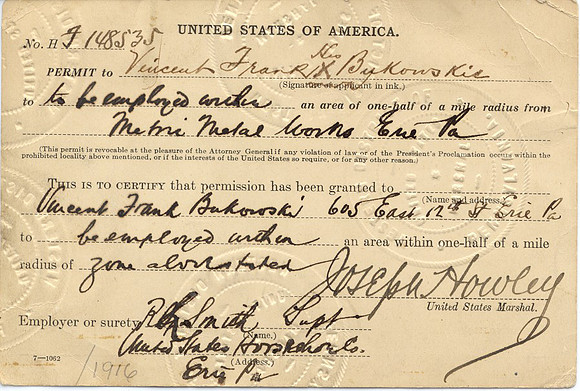 UNITED STATES OF AMERICA.
No. H J 148535
PERMIT to Vincent Frank His X Bukowskie
(Signature of applicant in ink.)
to to be employed within an area of one-half of a mile radius from
Metric Metal Works Erie Pa
(This permit is revocable at the pleasure of the Attorney General if any violation of law or of the President's Proclamation occurs within the
prohibited locality above mentioned, or if the interests of the United States so require, or for any other reason.)
THIS IS TO CERTIFY that permission has been granted to
(Name and address.)
Vincent Frank Bukowski 605 East 12th St Erie Pa
to be employed within an area within one-half of a mile
radius of zone above stated
Joseph Howley
United States Marshal.
Employer or surety R H Smith Supt
(Name.)
United States Horseshoe Co.
(Address.)
Erie Pa
7—1062
/1916